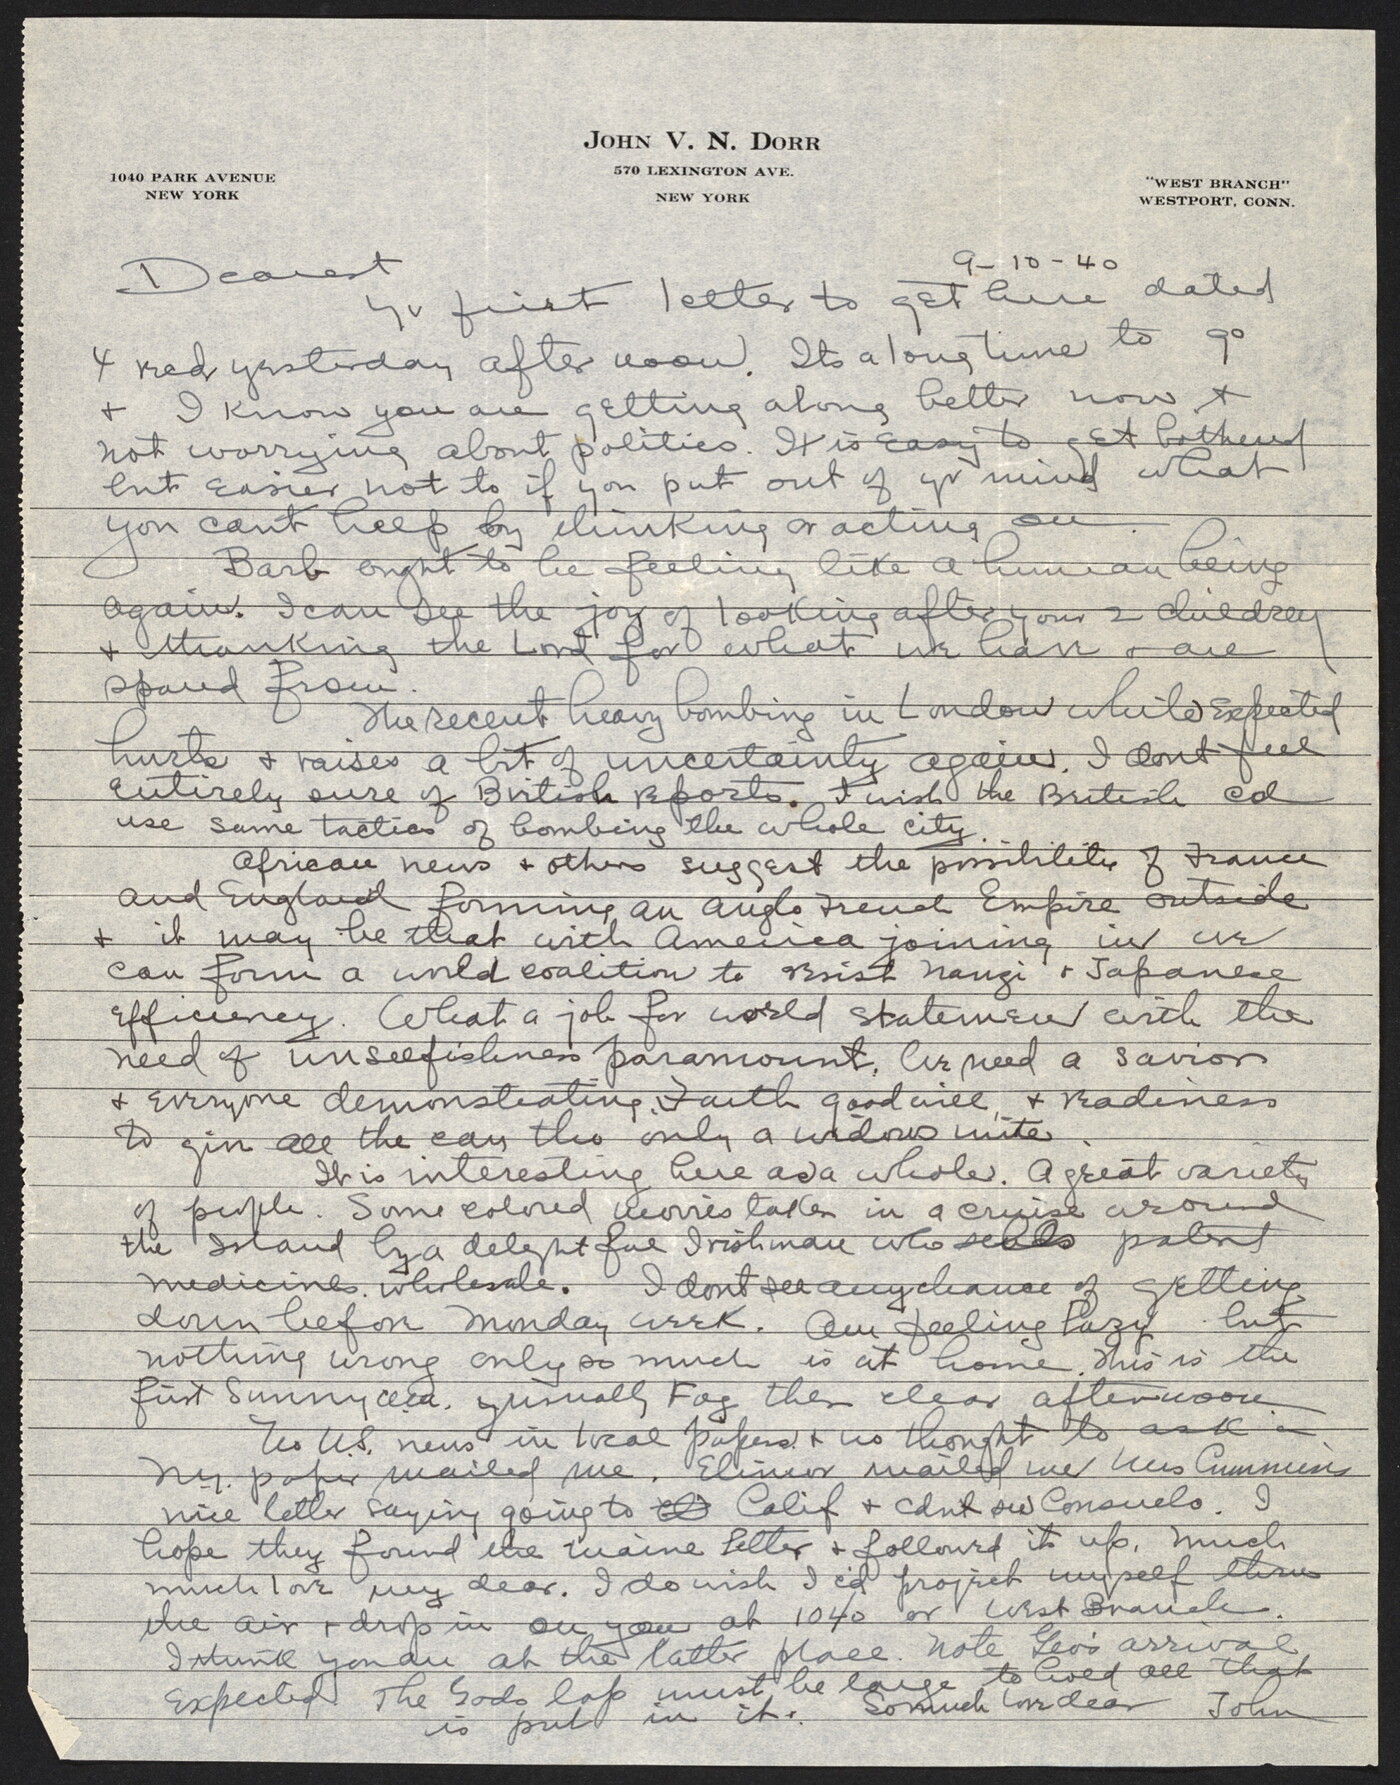 John V. N. Dorr
1040 PARK AVENUE
NEW YORK
570 LEXINGTON AVE.
NEW YORK
"WEST BRANCH"
WESTPORT, CONN.
9-10-40
Dearest
Yr first letter to get here dated
4 recd yesterday afternoon. Its a long time to go
+ I know you are getting along better now +
not worrying about politics. It is easy to get bothered
but easier not to if you put out of yr mind what
you cant help by thinking or acting on.
Barb ought to be feeling like a human being
again. I can see the joy of looking after your 2 children
+ thanking the Lord for what we have + are
spared from.
The recent heavy bombing in London while expected
hurts + raises a bit of uncertainty again. I dont feel
entirely sure of British reports. I wish the British cd
use same tactics of bombing the whole city.
African news + others suggest the possibility of France
and England forming an Anglo French Empire outside
+ it may be that with America joining in we
can form a world coalition to resist Nauzi + Japanese
efficiency. What a job for world statemen with the
need of unselfishness paramount. We need a savior
+ everyone demonstrating Faith good will, + readiness
to give all the can tho only a widows mite.
It is interesting here as a whole. A great variety
of people. Some colored movies taken in a cruise around
the Island by a delightful Irishman who sells patent
medicines wholesale. I dont see any chance of getting
down before Monday week. Am feeling lazy but
nothing wrong only so much is at home. This is the
first Sunny usually Fog then clear afternoon
No U.S. news in local papers + no thought to ask a
N.Y. paper mailed me. Elinor mailed me Mrs Cummins
nice letter saying going to Calif + cdnt see Consuelo. I
hope they found the Maine letter + followed it up. Much
much love my dear. I do wish I cd project myself thru
the air + drop in on you at 1040 or West Branch.
I think you are at the latter place. Note Geo's arrival
expected The Gods lap must be large to hold all that
is put in it. So much love dear John